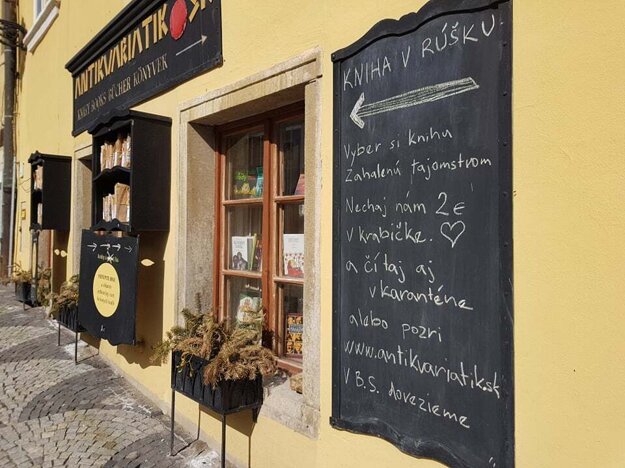 ANTIKVARIATIK
KNIHY BOOKS BÜCHER KÖNYVEK
KNIHA V RÚŠKU
Vyber si knihu
Zahalenú tajomstvom
Nechaj nám 2€
v krabičke. ♡
a čítaj aj
v karanténe
alebo pozri
www.antikvariatik.sk
V B.S. dovezieme